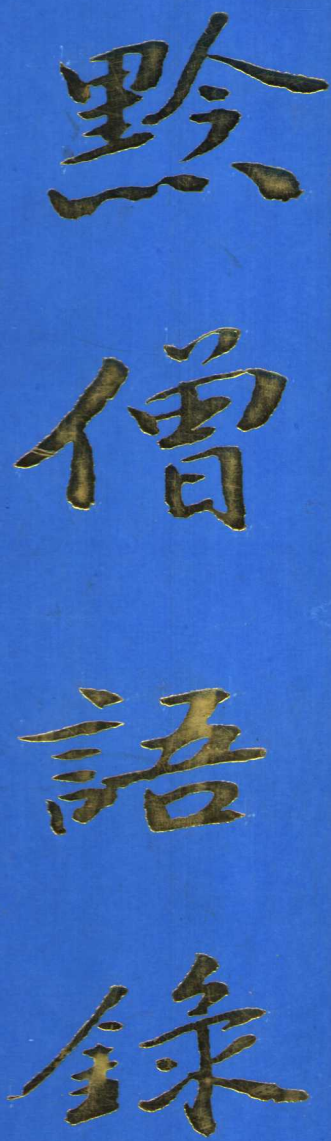 黔僧語錄